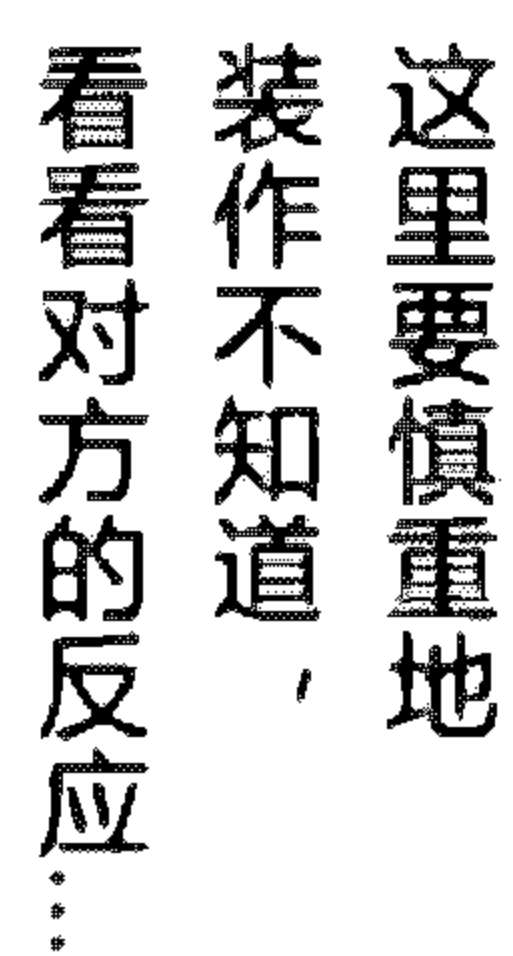 这里要慎重地
装作不知道，
看看对方的反应…